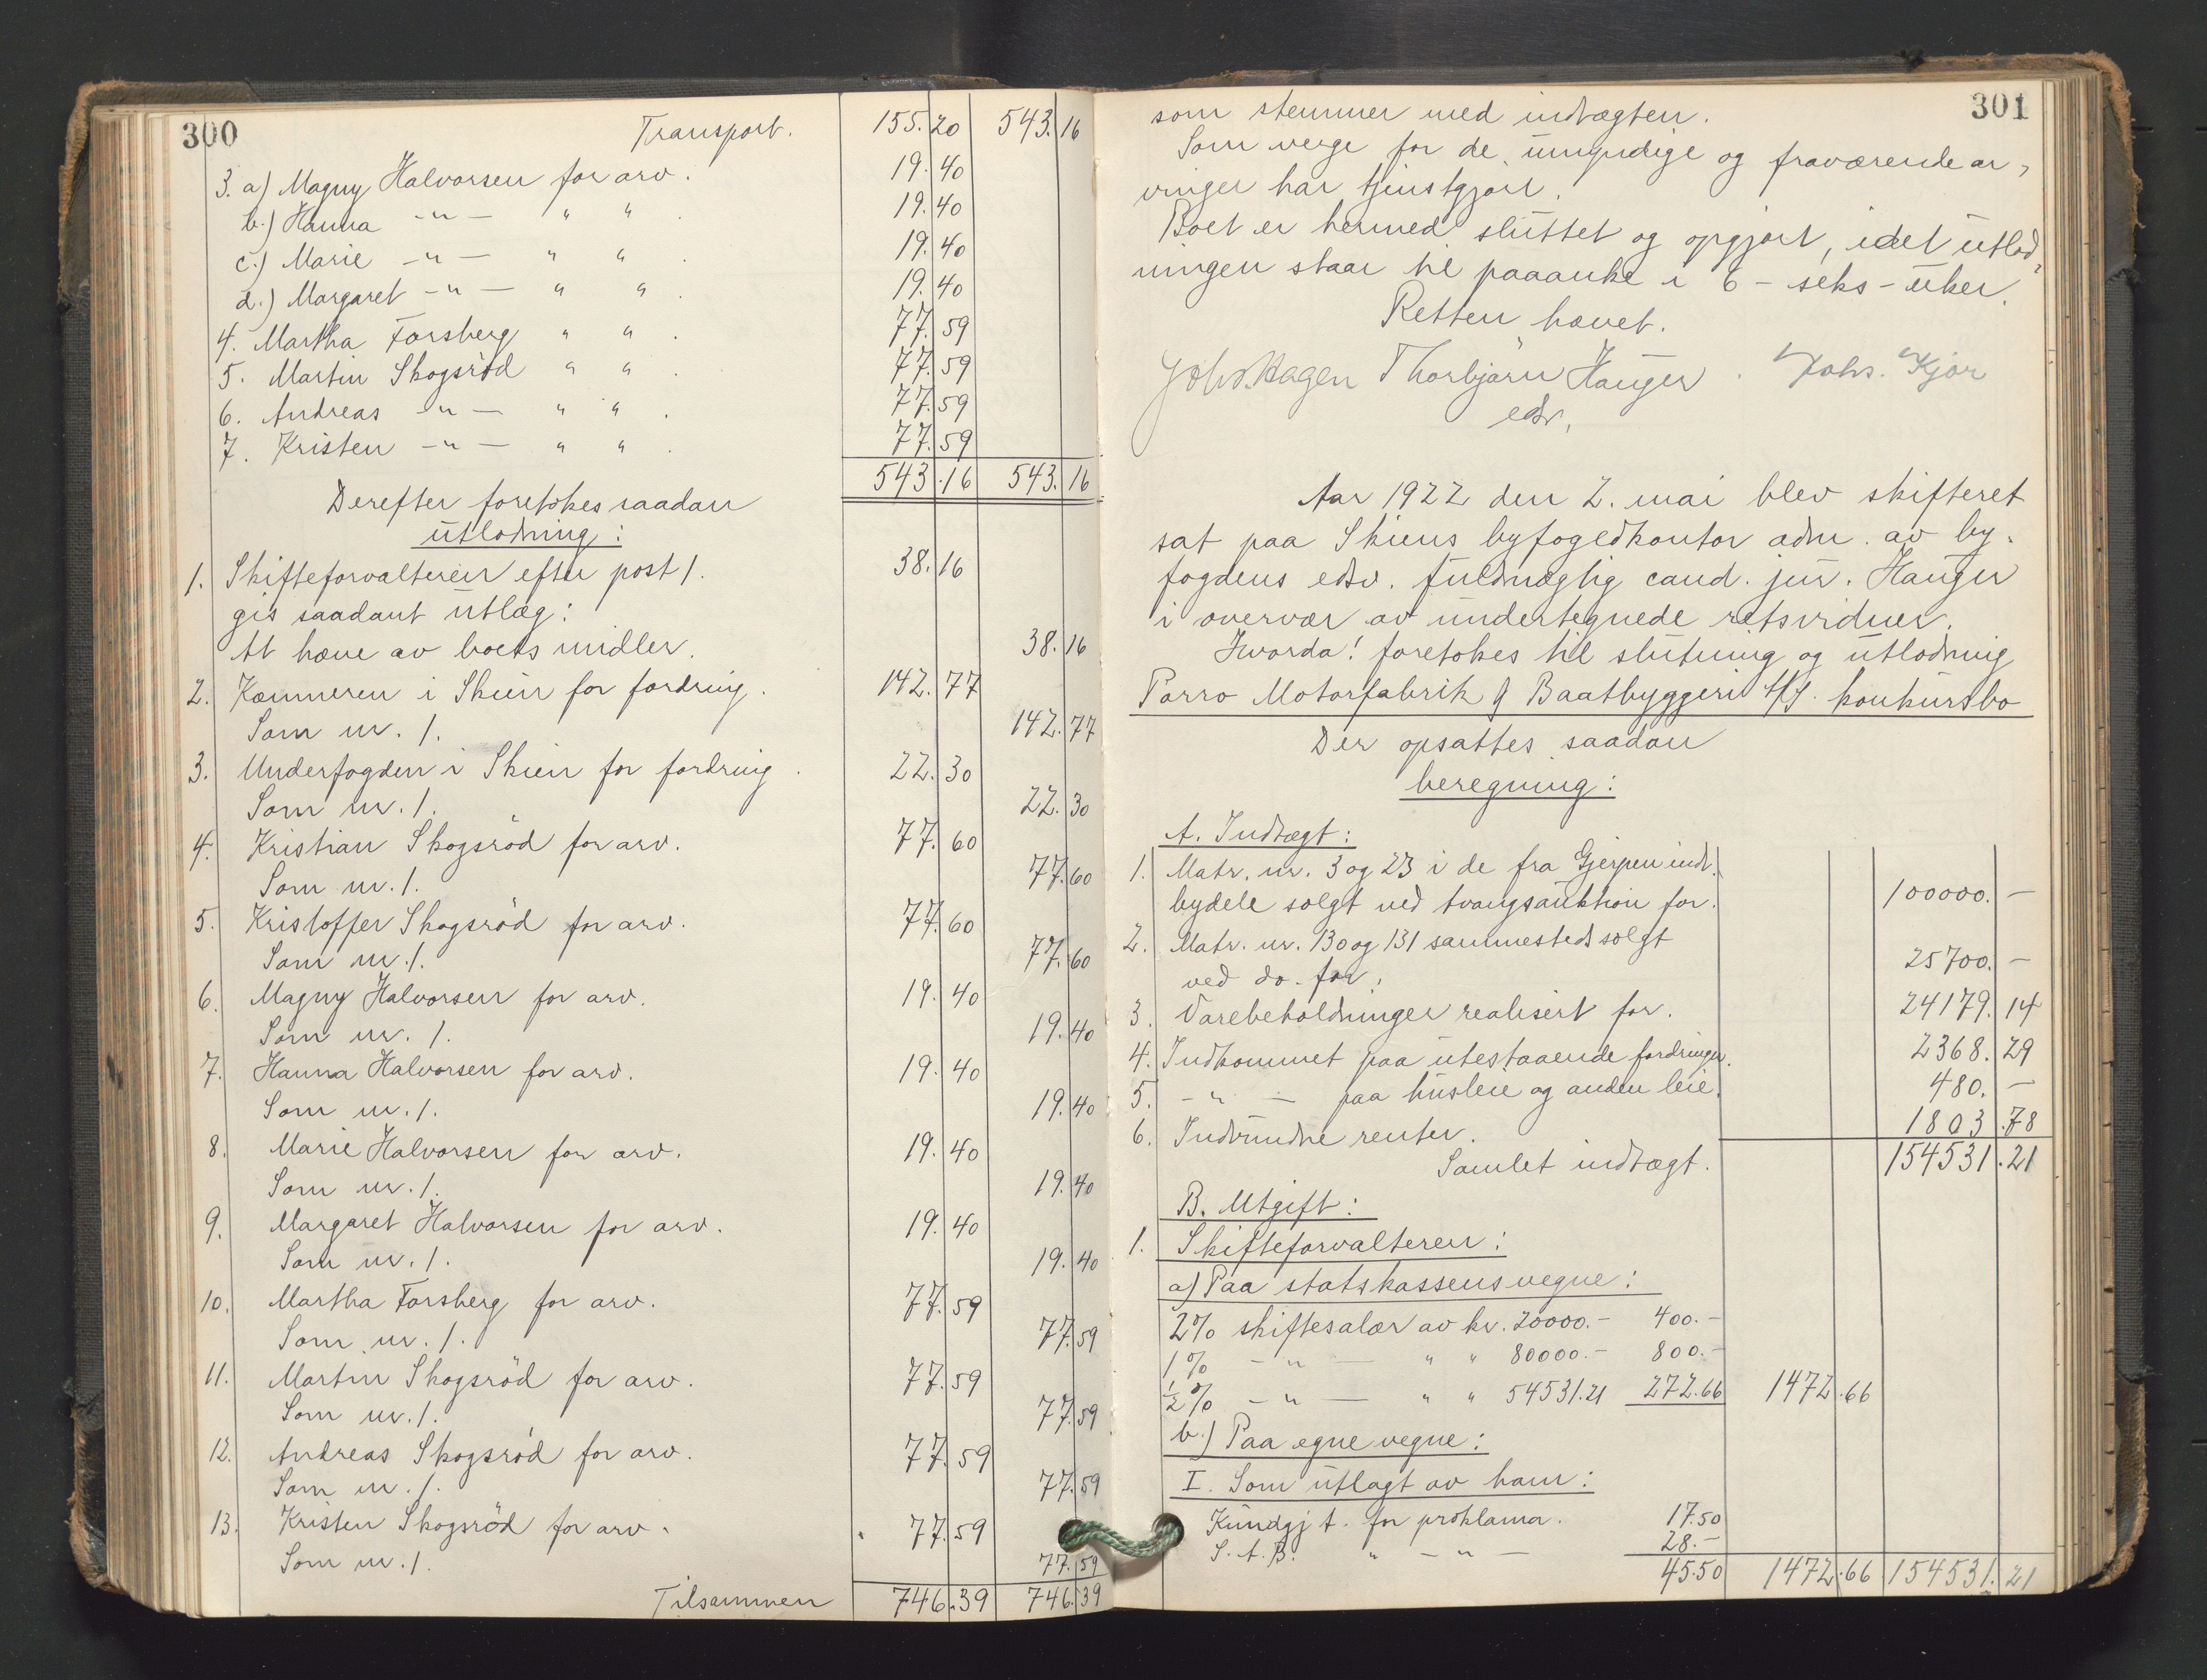 300
Transport. 155.20 543.16
3. a) Magny Halvorsen for arv. 19.40
b.) Hanna -"- " " . 19.40
c.) Marie -"- " " . 19.40
d.) Margaret -"- " " . 19.40
4. Martha Forsberg " " . 77.59
5. Martin Skogsröd " " . 77.59
6. Andreas -"- " " . 77.59
7. Kristen -"- " " . 77.59
543.16 543.16
Derefter foretokes saadan
utlodning:
1. Skifteforvalteren efter post 1. 38.16
gis saadant utlæg:
At hæve av boets midler. 38.16
2. Kæmneren i Skien for fordring. 142.77
Som nr. 1. 142.77
3. Underfogden i Skien for fordring. 22.30
Som nr. 1. 22.30
4. Kristian Skogsröd for arv. 77.60
Som nr. 1. 77.60
5. Kristoffer Skogsröd for arv. 77.60
Som nr. 1. 77.60
6. Magny Halvorsen for arv. 19.40
Som nr. 1. 19.40
7. Hanna Halvorsen for arv. 19.40
Som nr. 1. 19.40
8. Marie Halvorsen for arv. 19.40
Som nr. 1. 19.40
9. Margaret Halvorsen for arv. 19.40
Som nr. 1. 19.40
10. Martha Forsberg for arv. 77.59
Som nr. 1. 77.59
11. Martin Skogsröd for arv. 77.59
Som nr. 1. 77.59
12. Andreas Skogsröd for arv. 77.59
Som nr. 1. 77.59
13. Kristen Skogsröd for arv. 77.59
Som nr. 1. 77.59
Tilsammen 746.39 746.39
301
som stemmer med indtægten.
Som verge for de umyndige og fraværende ar-
vinger har tjenstgjort.
Boet er hermed sluttet og opgjort, idet utlod-
ningen staar til paaanke i 6 - seks - uker.
Retten hævet.
Johs. Hagen Thorbjörn Hauger . Johs. Kjær
edsv.
Aar 1922 den 2. mai blev skifteret
sat paa Skiens byfogedkontor adm. av by-
fogdens edsv. fuldmægtig cand. jur. Hauger
i overvær av undertegnede retsvidner.
Hvorda! foretokes til slutning og utlodning
Porro Motorfabrik & Baatbyggeri A/S. konkursbo
Der opsattes saadan
beregning:
A. Indtægt:
1. Matr. nr. 3 og 23 i de fra Gjerpen indl.
bydele solgt ved tvangsauktion for. 100000.-
2. Matr. nr. 130 og 131 sammesteds solgt
ved do. for. 25700.-
3. Varebeholdninger realisert for. 24179.14
4. Indkommet paa utestaaende fordringer. 2368.29
5. -"- paa husleie og anden leie. 480.-
6. Indvundne renter. 1803.78
Samlet indtægt. 154531.21
B. Utgift:
1. Skifteforvalteren:
a) Paa statskassens vegne:
2% skiftesalær av kr. 20000.- 400.-
1% -"- " " 80000.- 800.-
½% -"- " " 54531.21 272.66 1472.66
b.) Paa egne vegne:
I. Som utlagt av ham:
Kundgj t. for proklama. 17.50
S. A. B. " -"- 28.-
45.50 1472.66 154531.21